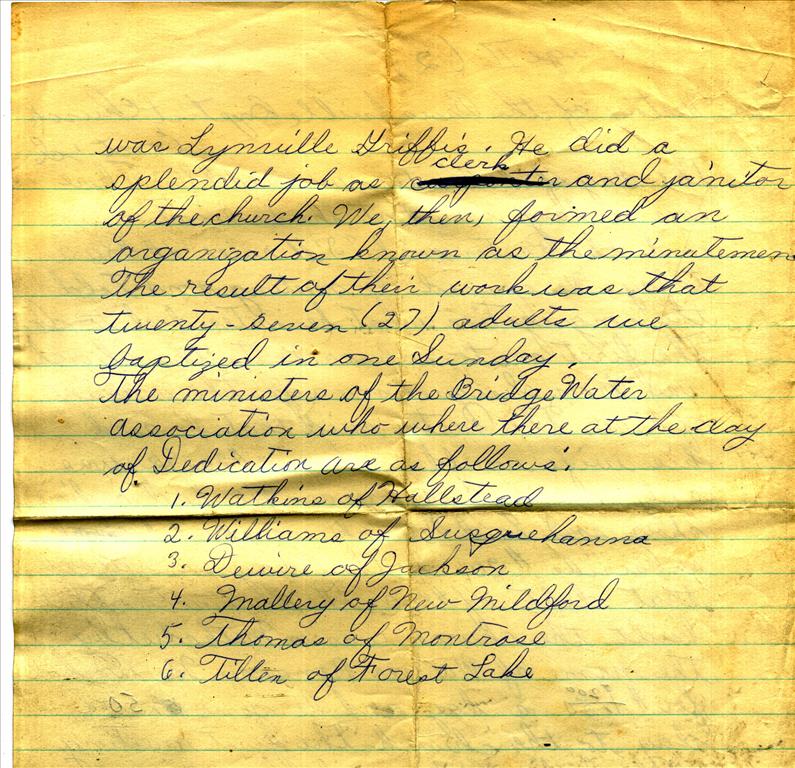 was Lynville Griffis. He did a
clerk
splendid job as carpenter and janitor
of the church. We, then, formed an
organization known as the minutemen
The result of their work was that
twenty-seven (27) adults we
baptized in one Sunday.
The ministers of the BridgeWater
association who where there at the day
of Dedication are as follows:
1. Watkins of Hallstead
2. Williams of Susquehanna
3. Dewire of Jackson
4. Mallery of New Mildford
5. Thomas of Montrose
6. Tillen of Forest Lake